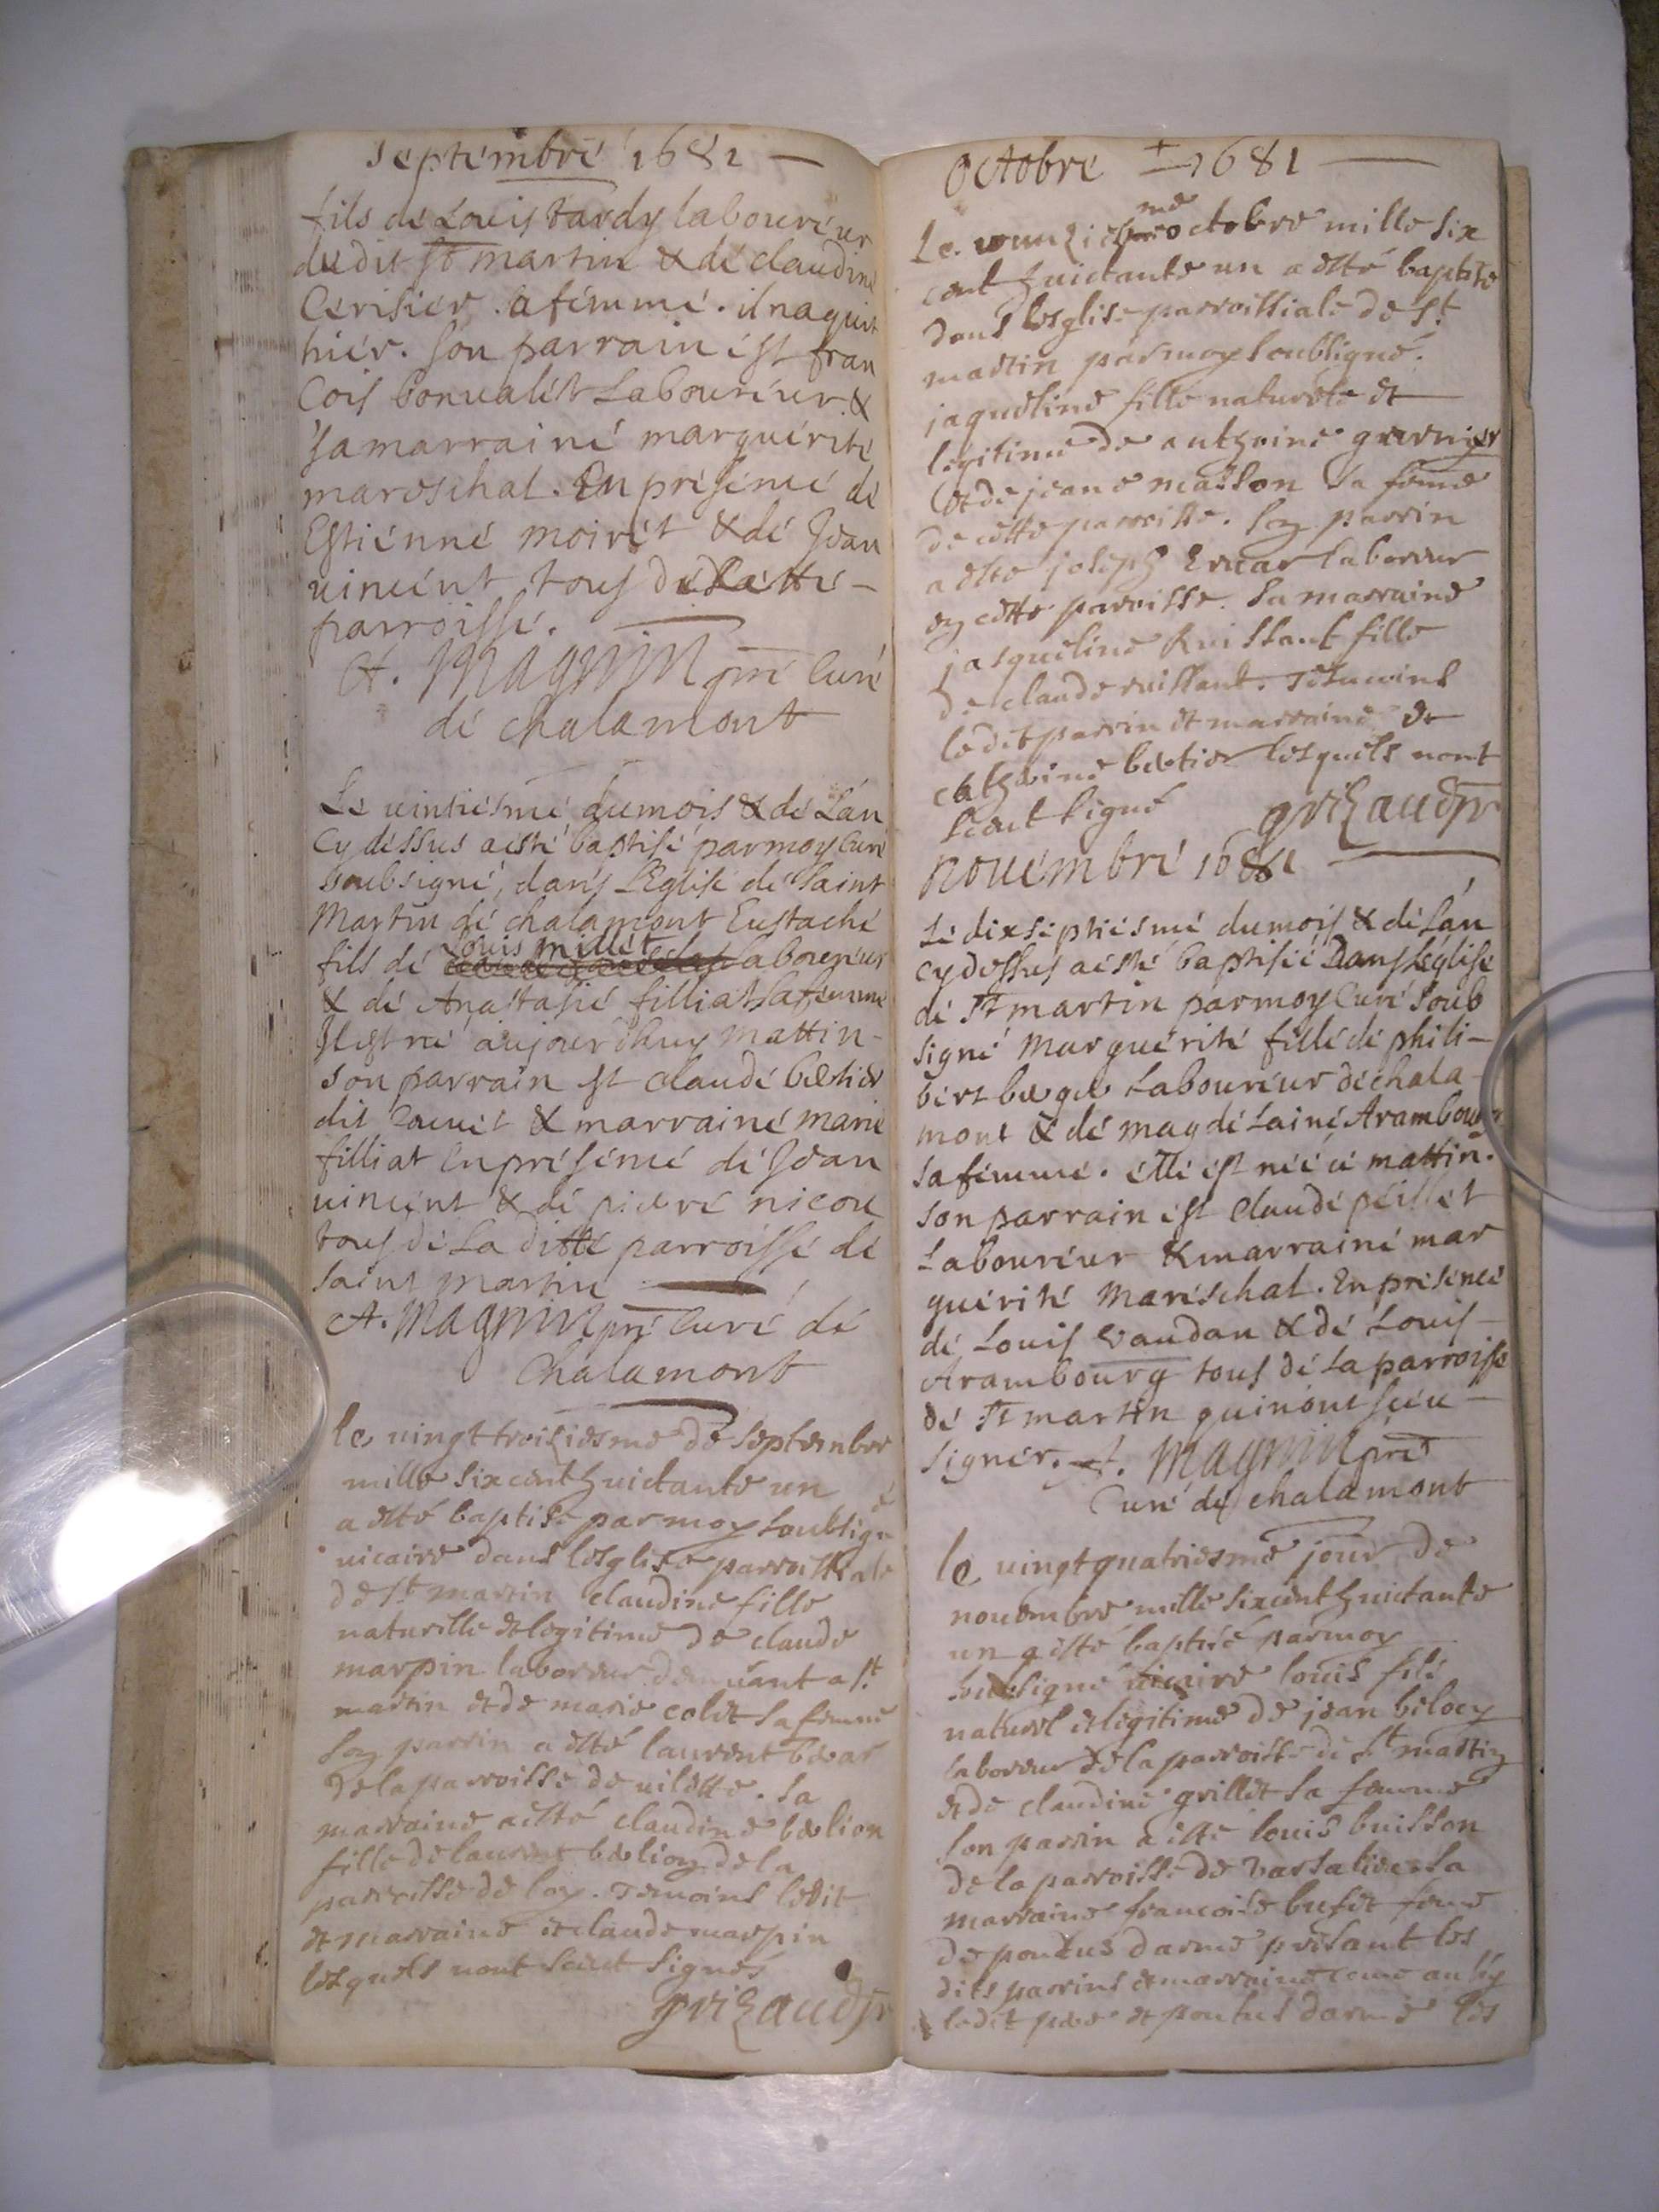 Septembre 1681
fils de Louis tardy laboureur
dudit St martin & de claudine
Cerisier sa femme. il naquit
hier. son parrain est fran
cois bonvalest Laboureur &
sa marraine marguerite
mareschal. En presence de
Estienne moiret & de Jean
vincent tous de laditte
parroisse.
A. Magnin pre Curé
de chalamont
Le vintiesme du mois & de L'an
Cy dessus a esté baptisé par moy Curé
soubsigné, dans L'Eglise de Saint
Martin de chalamont Eustache
fils de Louis millet laboureur
& de Anastasie filliat sa femme
Il est né aujourdhuy mattin
son parrain est claude bertier
dit & marraine marie
filliat En presence de Jean
vincent & de pierre nicou
tous de La ditte parroisse de
saint martin
A. Magnin pre Curé de
Chalamont
le vingt troiziesme de septembre
mille six cent huictante un
a esté baptisé par moy soubsigné
vicaire dans lesglise parroissiale
de St martin claudine fille
naturelle et legitime de claude
marpin laboreur demeurant a St
martin et de marie colet sa femme
son parrin a esté laurent
de la parroisse de vilette. sa
marraine a esté claudine berlion
fille de laurent berlion de la
parroisse de loy. Temoins ledit
et marraine et claude marpin
lesquels nont sceut signés
grizaud pr
Octobre 1681
Le octobre mille six
cent huictante un a esté baptisé
dans lesglise parroissiale de St
martin par moy soubsigné
jaqueline fille naturele et
legitime de anthoine grernier
et de jeane masson sa feme
de cette parroisse. son parrin
a esté joseph laboreur
en cette parroisse. sa marraine
jasqueline Ruissant fille
de claude ruissant. Tesmoins
ledit parrin et marraine et
cathrine bertier lesquels nont
sceut signé grizaud pr
Novembre 1681
Le dixseptiesme du mois & de L'an
cy dessus a esté baptisée Dans L'eglise
de St martin par moy Curé soub
signé Marguerite fille de phili-
bert berger Laboureur de chala-
mont & de magdelaine Arambourg
sa femme. elle est née ce mattin.
son parrain est Claude peillet
Laboureur & marraine mar
guerite Mareschal. En presence
de Louis vaudan & de Louis
Arambourg tous de La parroisse
de St martin qui nont sceu
signer. A. Magnin pre
Curé de chalamont
le vingt quatriesme jour de
novembre mille six cent huictante
un a esté baptisé par moy
soubsigné vicaire louis fils
naturel et legitime de jean biloey
laboreur de la parroisse de St martin
et de claudine grillet sa femme
son parrin a esté louis buisson
de la parroisse de varsalieu sa
marraine francoise bufet feme
de pontus darme presant les
dits parrins et marraine come aussy
ledit pere et pontus darme les